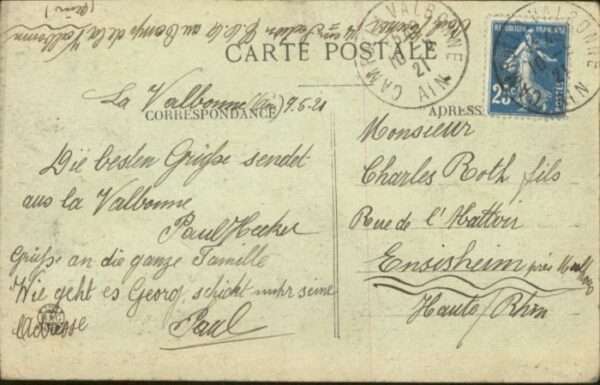 CARTE POSTALE
CORRESPONDANCE
ADRESSE
La Valbonne (Ain) 9.6.21
Die besten Grüße sendet
aus la Valbonne
Paul Hecker
Grüße an die ganze Familie
Wie geht es Georg, schickt mihr seine
Adresse Paul
Monsieur
Charles Roth fils
Rue de l'Hattoir
Ensisheim près
Haute Rhin
au Camp de la Valbonne
(Ain)
CAMP VALBONNE
AIN
21
25